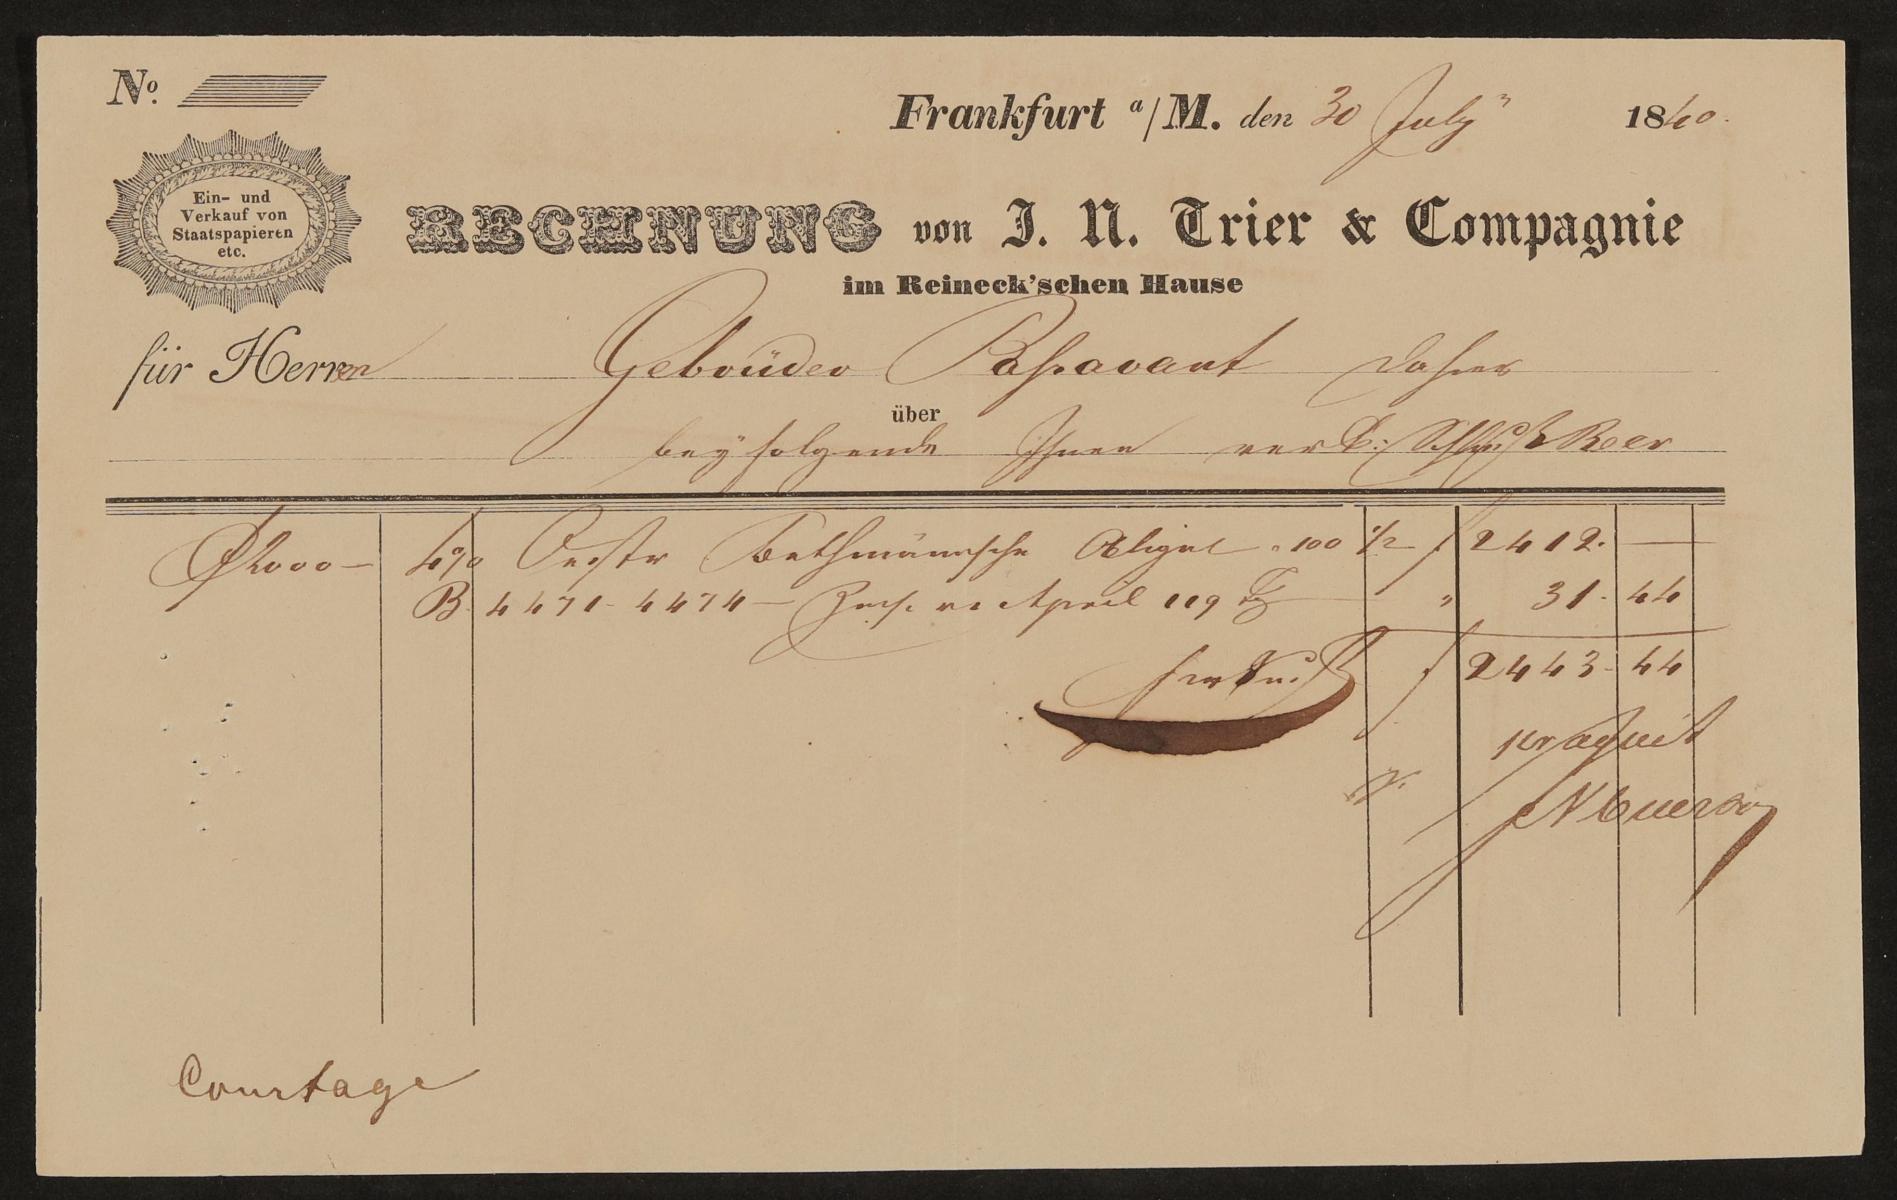 No.
Frankfurt a/M. den 30 July 1840.
Ein- und
Verkauf von
Staatspapieren
etc.
RECHNUNG von J. N. Trier & Compagnie
im Reineck'schen Hause
für Herren Gebrüder Passavant dahier
über
beyfolgende Ihnen
2000 — 4% Oestr Bethmännische Obligat 100 1/2 f 2412. —
B. 4471 - 4474 — Zins. v. 1 April 119 Tg " 31. 44
f 2443. 44
pr acquit
Courtage